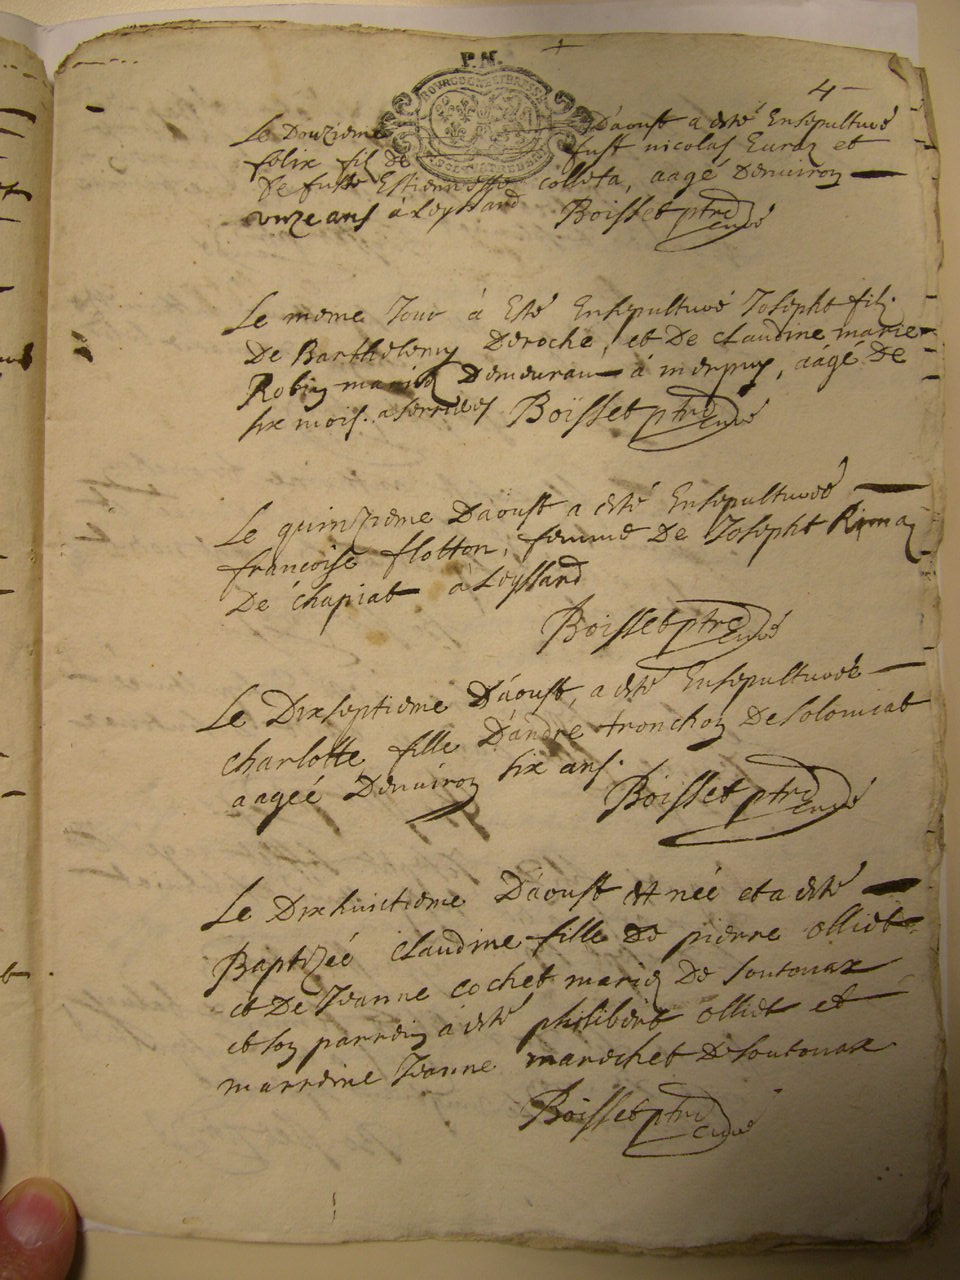 P.N.
BOURGOGNE ET BRESSE
4
Le Douzieme Daoust a esté Ensepulturé
felix fil de fust nicolas Euraz et
De fuste Estiennette colleta, aagé Denuiron
unze ans à Leyssard Boisset ptre curé
Le meme Jour à Esté Ensepulturé Joseph fil
De Barthelemy Deroche, et De claudine marie
Robin mariez Demeurant à merpuy, aâgé De
six mois. a serrieres Boisset ptre curé
Le quinzieme Daoust a esté Ensepulturéé
francoise flotton, femme De Joseph
De chapiat à Leyssard
Boisset ptre curé
Le Dixseptieme Daoust, a esté Ensepulturéé
charlotte fille Dandre tronchon De Solomiat
aagéé Denuiron six ans.
Boisset ptre curé
Le Dixhuictieme Daoust est née et a esté
Baptizéé claudine fille De pierre olliet
et De Jeanne cochet mariez De soutonax
et son parrein a esté philibert olliet et
marreine Jeanne marechet De soutonax
Boisset ptre curé